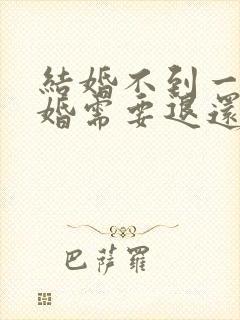 結婚不到一
婚需要退還
巴薩羅